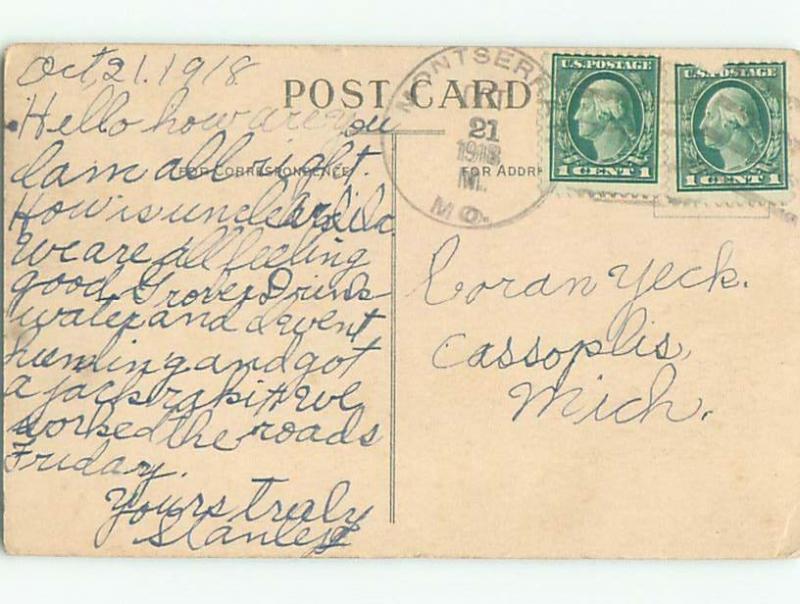 Oct, 21. 1918
Hello how are you
I am all right.
How is uncle
We are all feeling
good. Grover Drinks
water and I went
hunding and got
a jack rabitt We
worked the roads
Friday.
Yours truly
Stanley
POST CARD
FOR CORRESPONDENCE
FOR ADDR
MONTSERR
OCT
21
1918
M.
MO.
U.S. POSTAGE
1 CENT 1
U.S. POSTAGE
1 CENT 1
Coran Yeck.
Cassoplis,
Mich.